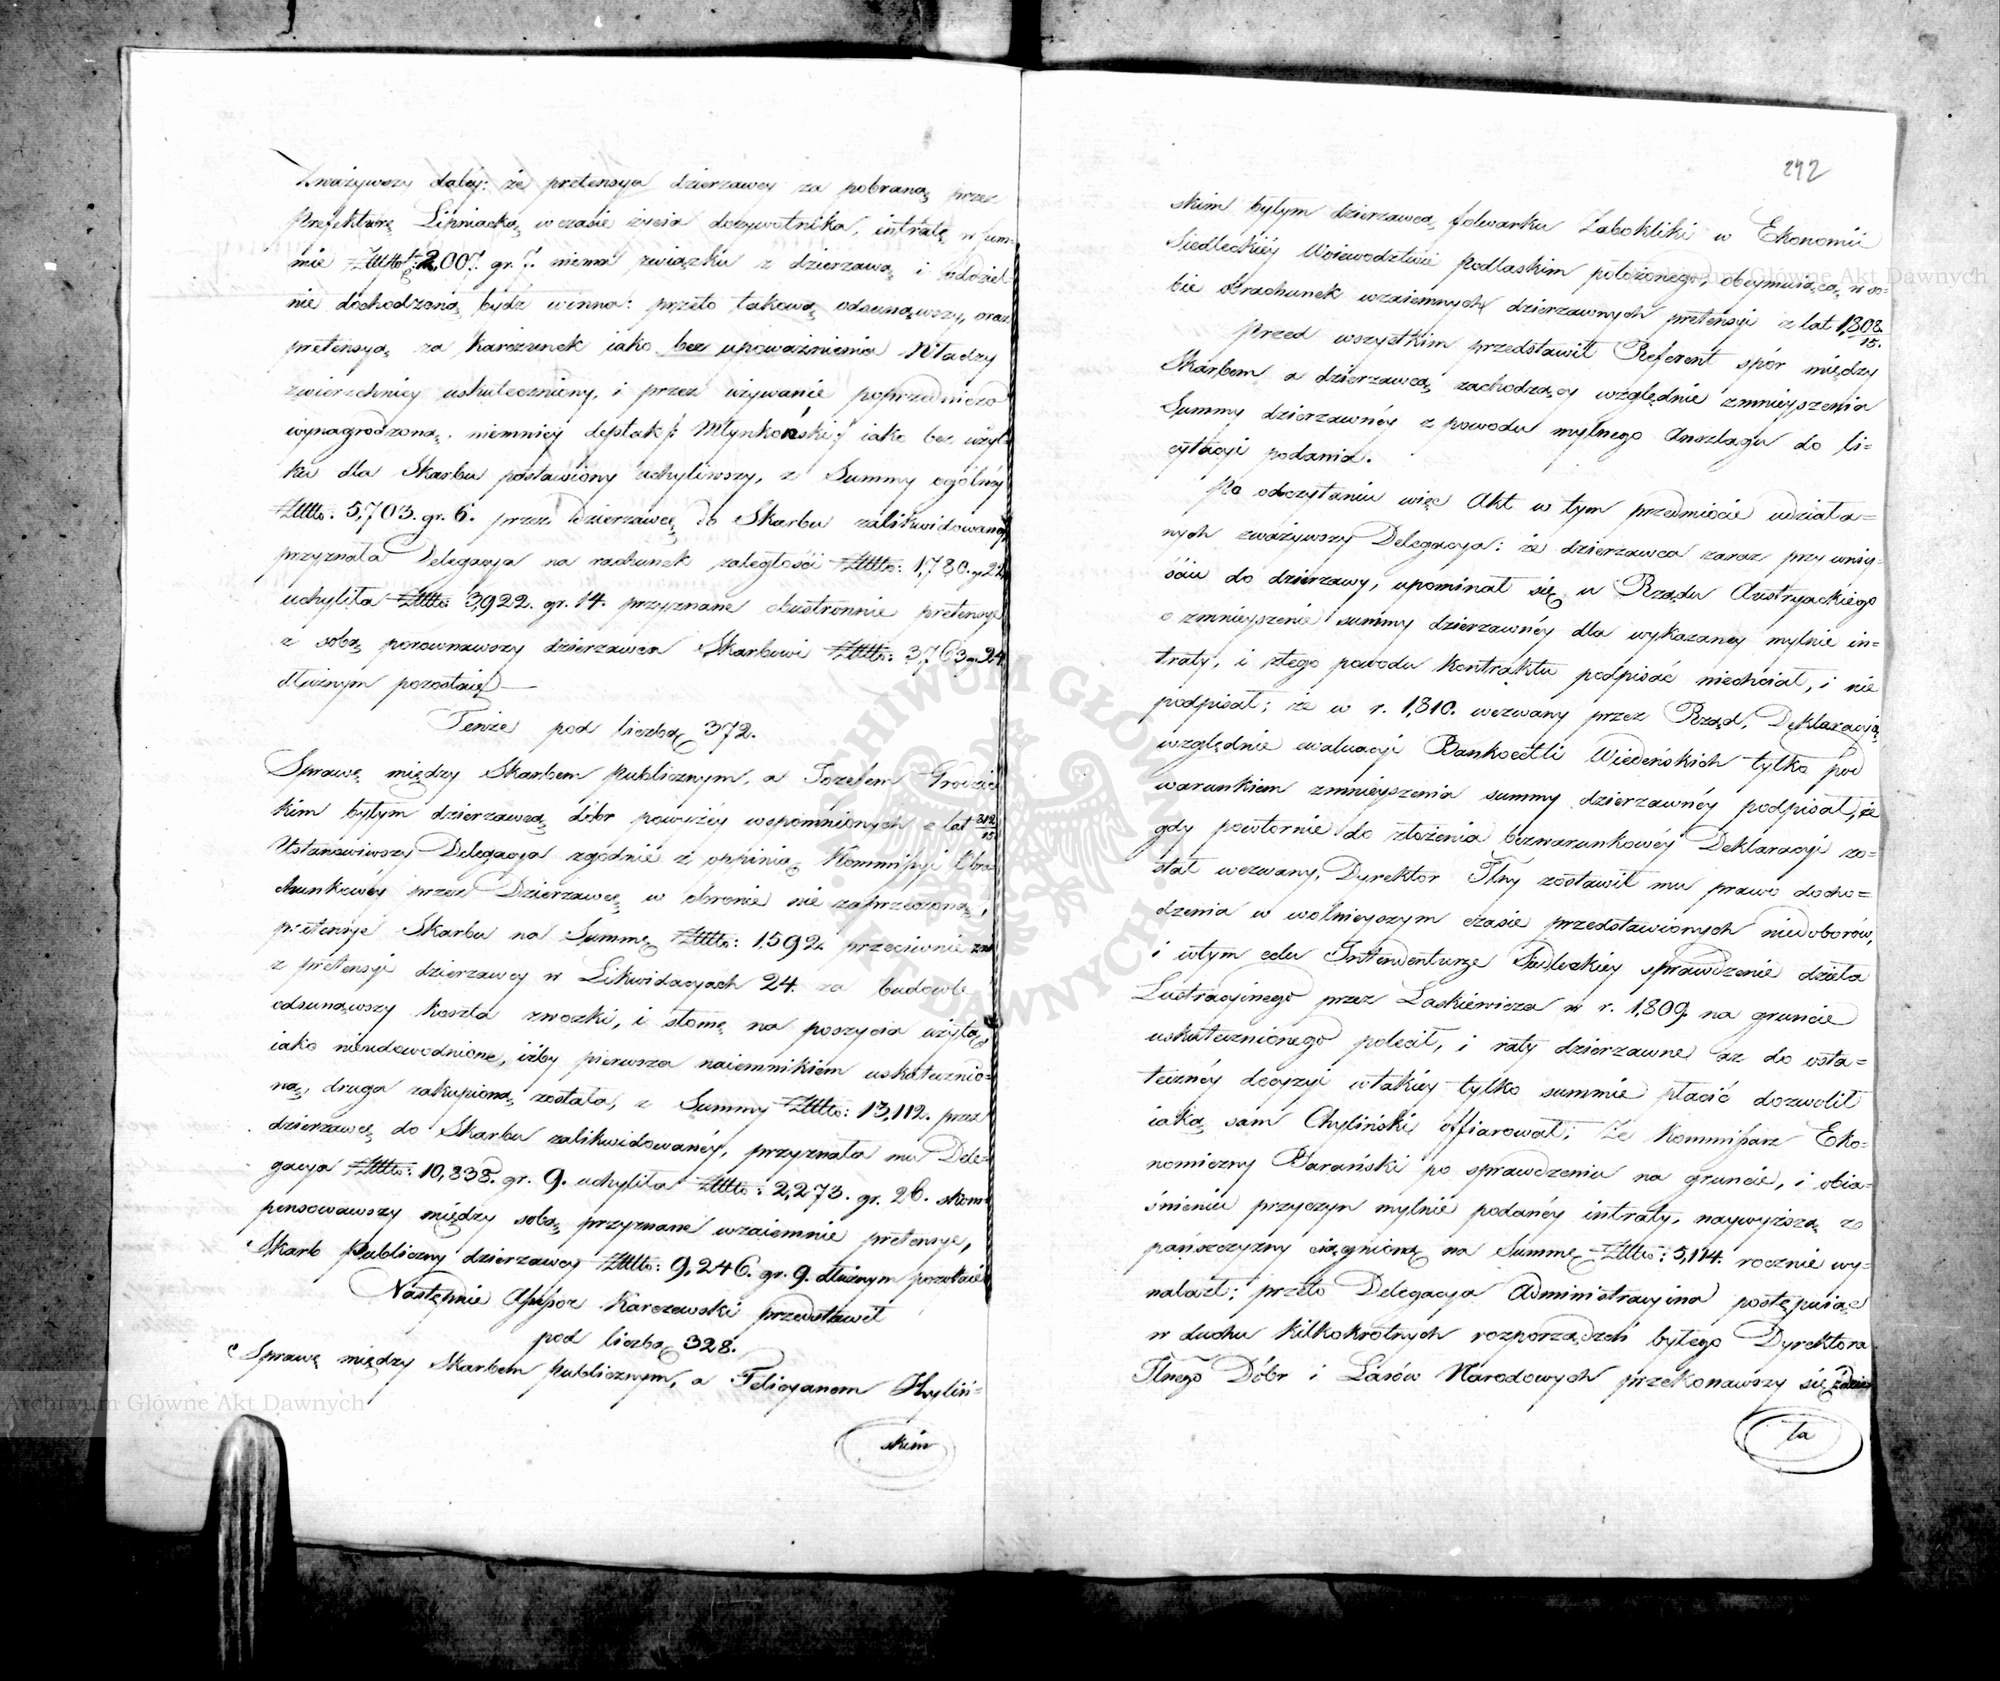 Zważywszy daléy: że pretensya dzierzawcy za pobraną przez
Prefekturę Lipniacką w czasie życia dożywotnika, intratę w sum=
mie Złłło: 2,007. gr. 7. niema związku z dzierzawą i oddziel=
nie dochodzoną bydź winna: przeto takową odsunąwszy, oraz
pretensyą za Karczunek iako bez upoważnienia Władzy
zwierzchniey uskuteczniony, i przez używanie poprzedniczo
wynagrodzoną, niemniey deptak Młynkowski iako bez użyt=
ku dla Skarbu postawiony uchyliwszy, z Summy ogólnéy
Złłło: 5,703. gr. 6. przez dzierzawcę do Skarbu zalikwidowanéy
przyznała Delegacya na rachunek zaległości Złłło: 1,780. gr 22
uchyliła Złłło 3,922. gr. 14. przyznane obustronnie pretensye
z sobą porownawszy dzierzawca Skarbowi Złłło: 3,763 gr 24
dłużnym pozostaie —
Tenże pod liczbą 372.
Sprawę między Skarbem Publicznym, a Jozefem Grodzic
kim byłym dzierzawcą dóbr powyżéy wspomnionych z lat 812/15
Ustanowiwszy Delegacya zgodnie z oppinią Kommissyi Obra
chunkowéy przez Dzierzawcę w obronie nie zaprzeczoną,
pretensye Skarbu na Summę Złłło: 1,592. przeciwnie zaś
z pretensyi dzierzawcy w Likwidacyach 24. za budowle
odsunąwszy koszta zwozki, i słomę na poszycia użytą,
iako nieudowodnione, iżby pierwsza naiemnikiem uskutecznio=
ną, druga zakupioną została, z Summy Złłło: 13,112. przez
dzierzawcę do Skarbu zalikwidowanéy, przyznała mu Dele=
gacya Złłło: 10,838. gr. 9. uchyliła Złłło: 2,273. gr. 26. skom=
pensowawszy między sobą przyznane wzaiemnie pretensye,
Skarb Publiczny dzierzawcy Złłło: 9,246. gr. 9. dłużnym pozostaie
Następnie Assessor Karczewski przedstawił
pod liczbą 328.
Sprawę między Skarbem Publicznym, a Felicyanem Chyliń=
skim
292
skim byłym dzierzawcą folwarku Żabokliki w Ekonomii
Siedleckiéy Woiewodztwie Podlaskim położonego, obeymuiącą w so=
bie obrachunek wzaiemnych dzierzawnych pretensyi z lat 1,808/15.
Przed wszystkim przedstawił Referent spór między
Skarbem a dzierzawcą zachodzący względnie zmnieyszenia
Summy dzierzawnéy z powodu mylnego Anszlagu do li=
cytacyi podania.
Po odczytaniu więc Akt w tym przedmiocie udziała=
nych zważywszy Delegacya: że dzierzawca zaraz przy wniy=
ściu do dzierzawy, upominał się u Rządu Austryackiego
o zmnieyszenie summy dzierzawnéy dla wykazaney mylnie in=
traty, i z tego powodu Kontraktu podpisać niechciał, i nie
podpisał; że w r. 1,810. wezwany przez Rząd, Deklaracyą
względnie ewaluacyi Bankocetli Wiedeńskich tylko pod
warunkiem zmnieyszenia summy dzierzawnéy podpisał, że
gdy powtornie do złożenia bezwarunkowéy Deklaracyi zo=
stał wezwany, Dyrektor Jlny zostawił mu prawo docho=
dzenia w wolnieyszym czasie przedstawionych niedoborów,
i w tym celu Intendenturze Siedleckiey sprawdzenie dzieła
Lustracyinego przez Laskiewicza w r. 1,809. na gruncie
uskutecznionego polecił, i raty dzierzawne aż do osta=
teczney decyzyi w takiéy tylko summie płacić dozwolił
iaką sam Chyliński offiarował; że Kommissarz Eko=
nomiczny Barański po sprawdzeniu na gruncie, i obia=
śnieniu przyczyn mylnie podanéy intraty, naywyższą z
pańszczyzny ciągnioną na Summę Złłło: 5,114. rocznie wy=
nalazł; przeto Delegacya Administracyina postępuiąc
w duchu kilkokrotnych rozporządzeń byłego Dyrektora
Jlnego Dóbr i Lasów Narodowych przekonawszy się z dzie=
ła